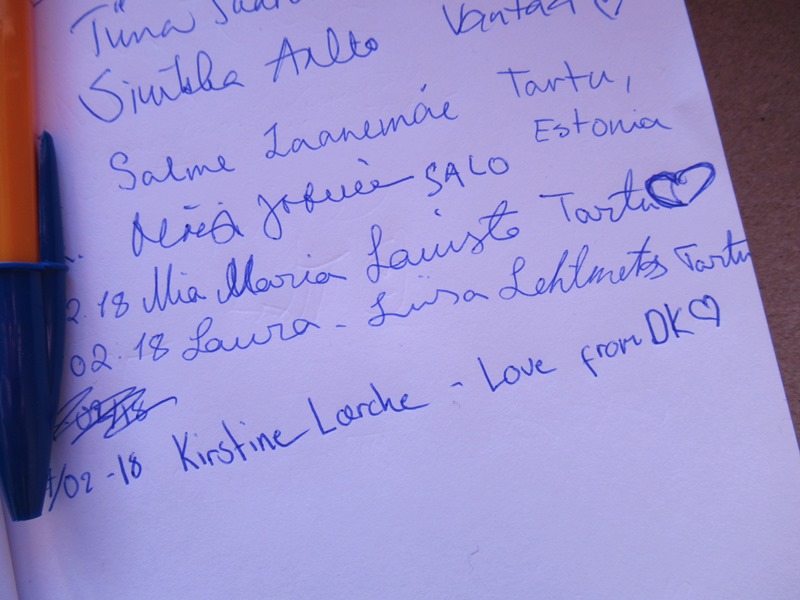 Tiina
Vantaa ♡
Sirkka Aalto
Salme Laanemäe Tartu,
Estonia
SALO
2.18 Mia Maria Launisto Tartu ♡
02.18 Laura-Liisa Lehtmets Tartu
02.18
/02-18 Kirstine Lærche - Love from DK ♡